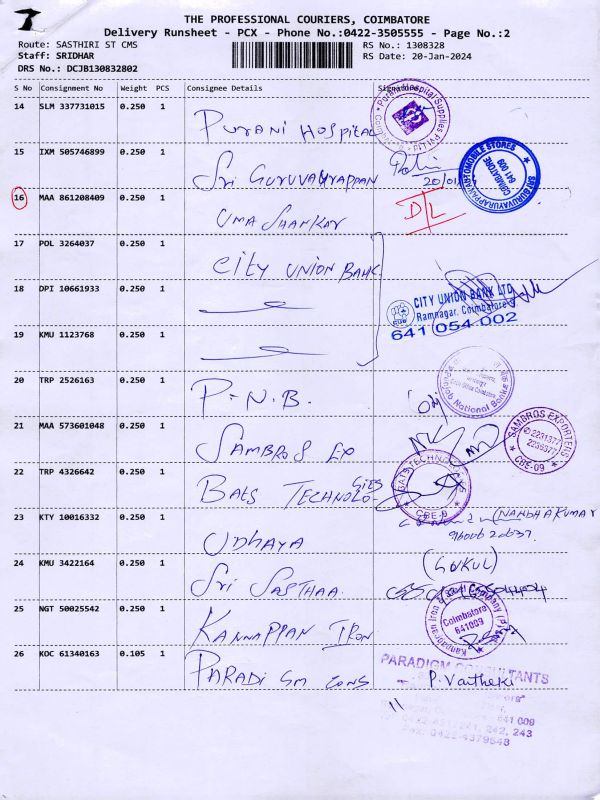 THE PROFESSIONAL COURIERS, COIMBATORE
Delivery Runsheet - PCX - Phone No.:0422-3505555 - Page No.:2
Route: SASTHIRI ST CMS
RS No.: 1308328
Staff: SRIDHAR
RS Date: 20-Jan-2024
DRS No.: DCJB130832802
S No Consignment No Weight PCS Consignee Details Signature
14 SLM 337731015 0.250 1 Purani Hospital
15 IXM 505746899 0.250 1 Sri Guruvayurappan
20/01
SRI GURUVAYURAPPAN AUTOMOBILE STORES
COIMBATORE
641 009
16 MAA 861208409 0.250 1 Uma Shankar D/L
17 POL 3264037 0.250 1 City Union Bank
18 DPI 10661933 0.250 1
CITY UNION BANK LTD
Ramnagar, Coimbatore
641 054 002
19 KMU 1123768 0.250 1
20 TRP 2526163 0.250 1 P.N.B.
Punjab National Bank
21 MAA 573601048 0.250 1 Sambros Ex
SAMBROS EXPORTERS
CBE-09
22 TRP 4326642 0.250 1 Bats Technologies
BATS TECHNOLOGIES
CBE-9
23 KTY 10016332 0.250 1 Udhaya
(NANDHAKUMAR
24 KMU 3422164 0.250 1 Sri Sasthaa.
(GOKUL)
25 NGT 50025542 0.250 1 Kannappan Iron
Kannapiran Iron & Steel Company (P) Ltd
Coimbatore
641009
26 KOC 61340163 0.105 1 Paradi sm cons
PARADIGM CONSULTANTS
P. Vaitheki
641 009
242, 243
Fax: 0422-4379648